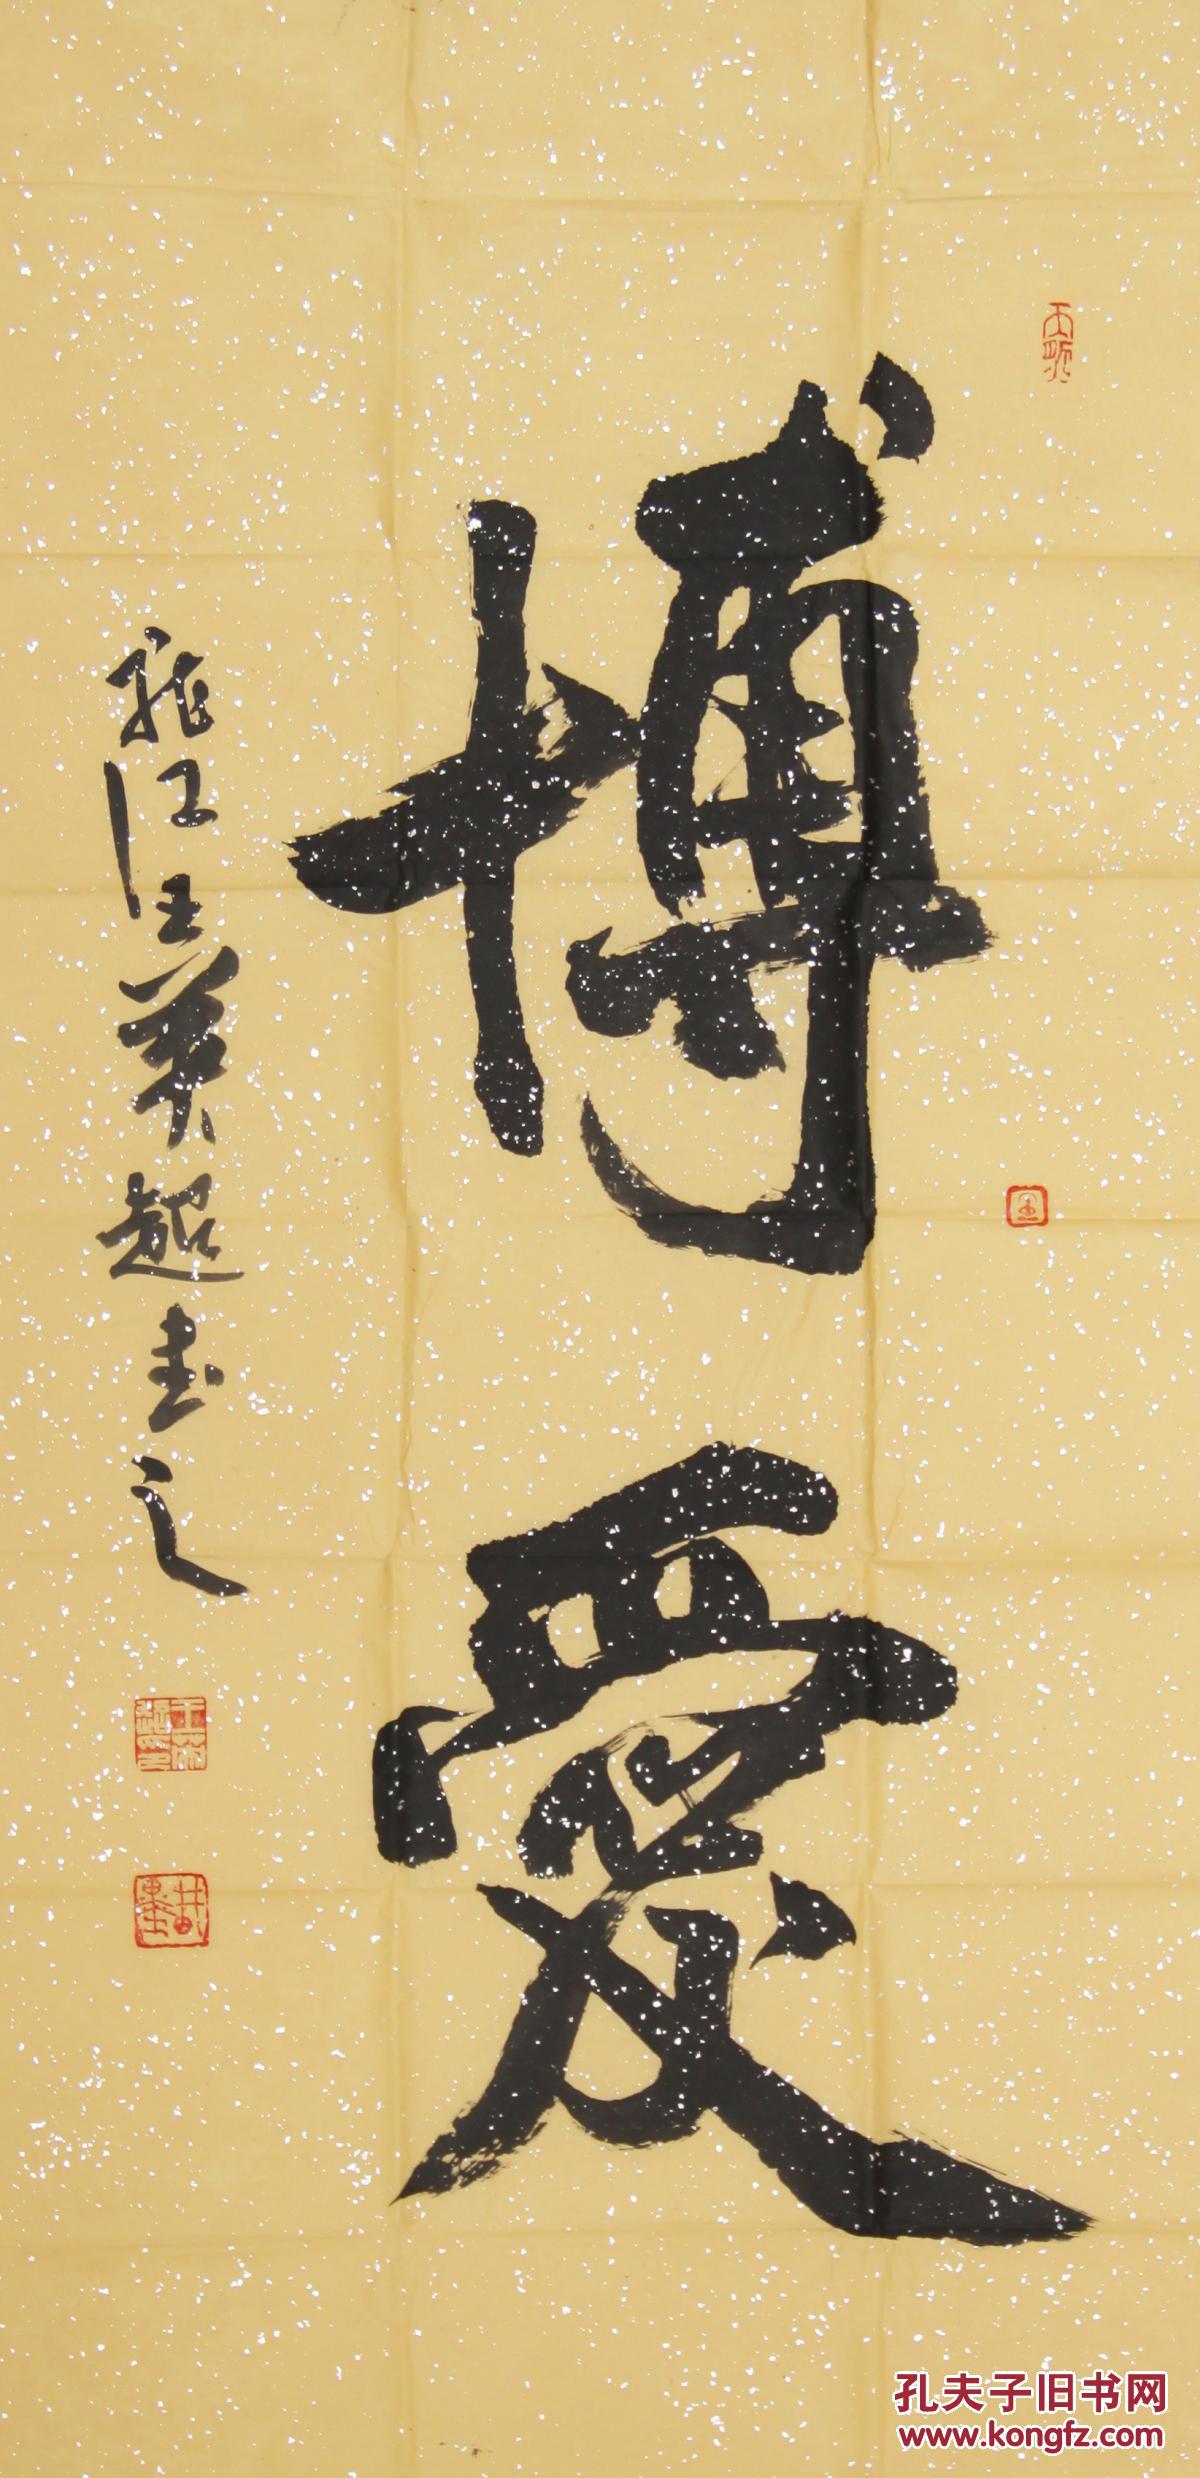 博愛
龍江王英超書之
孔夫子旧书网
www.kongfz.com